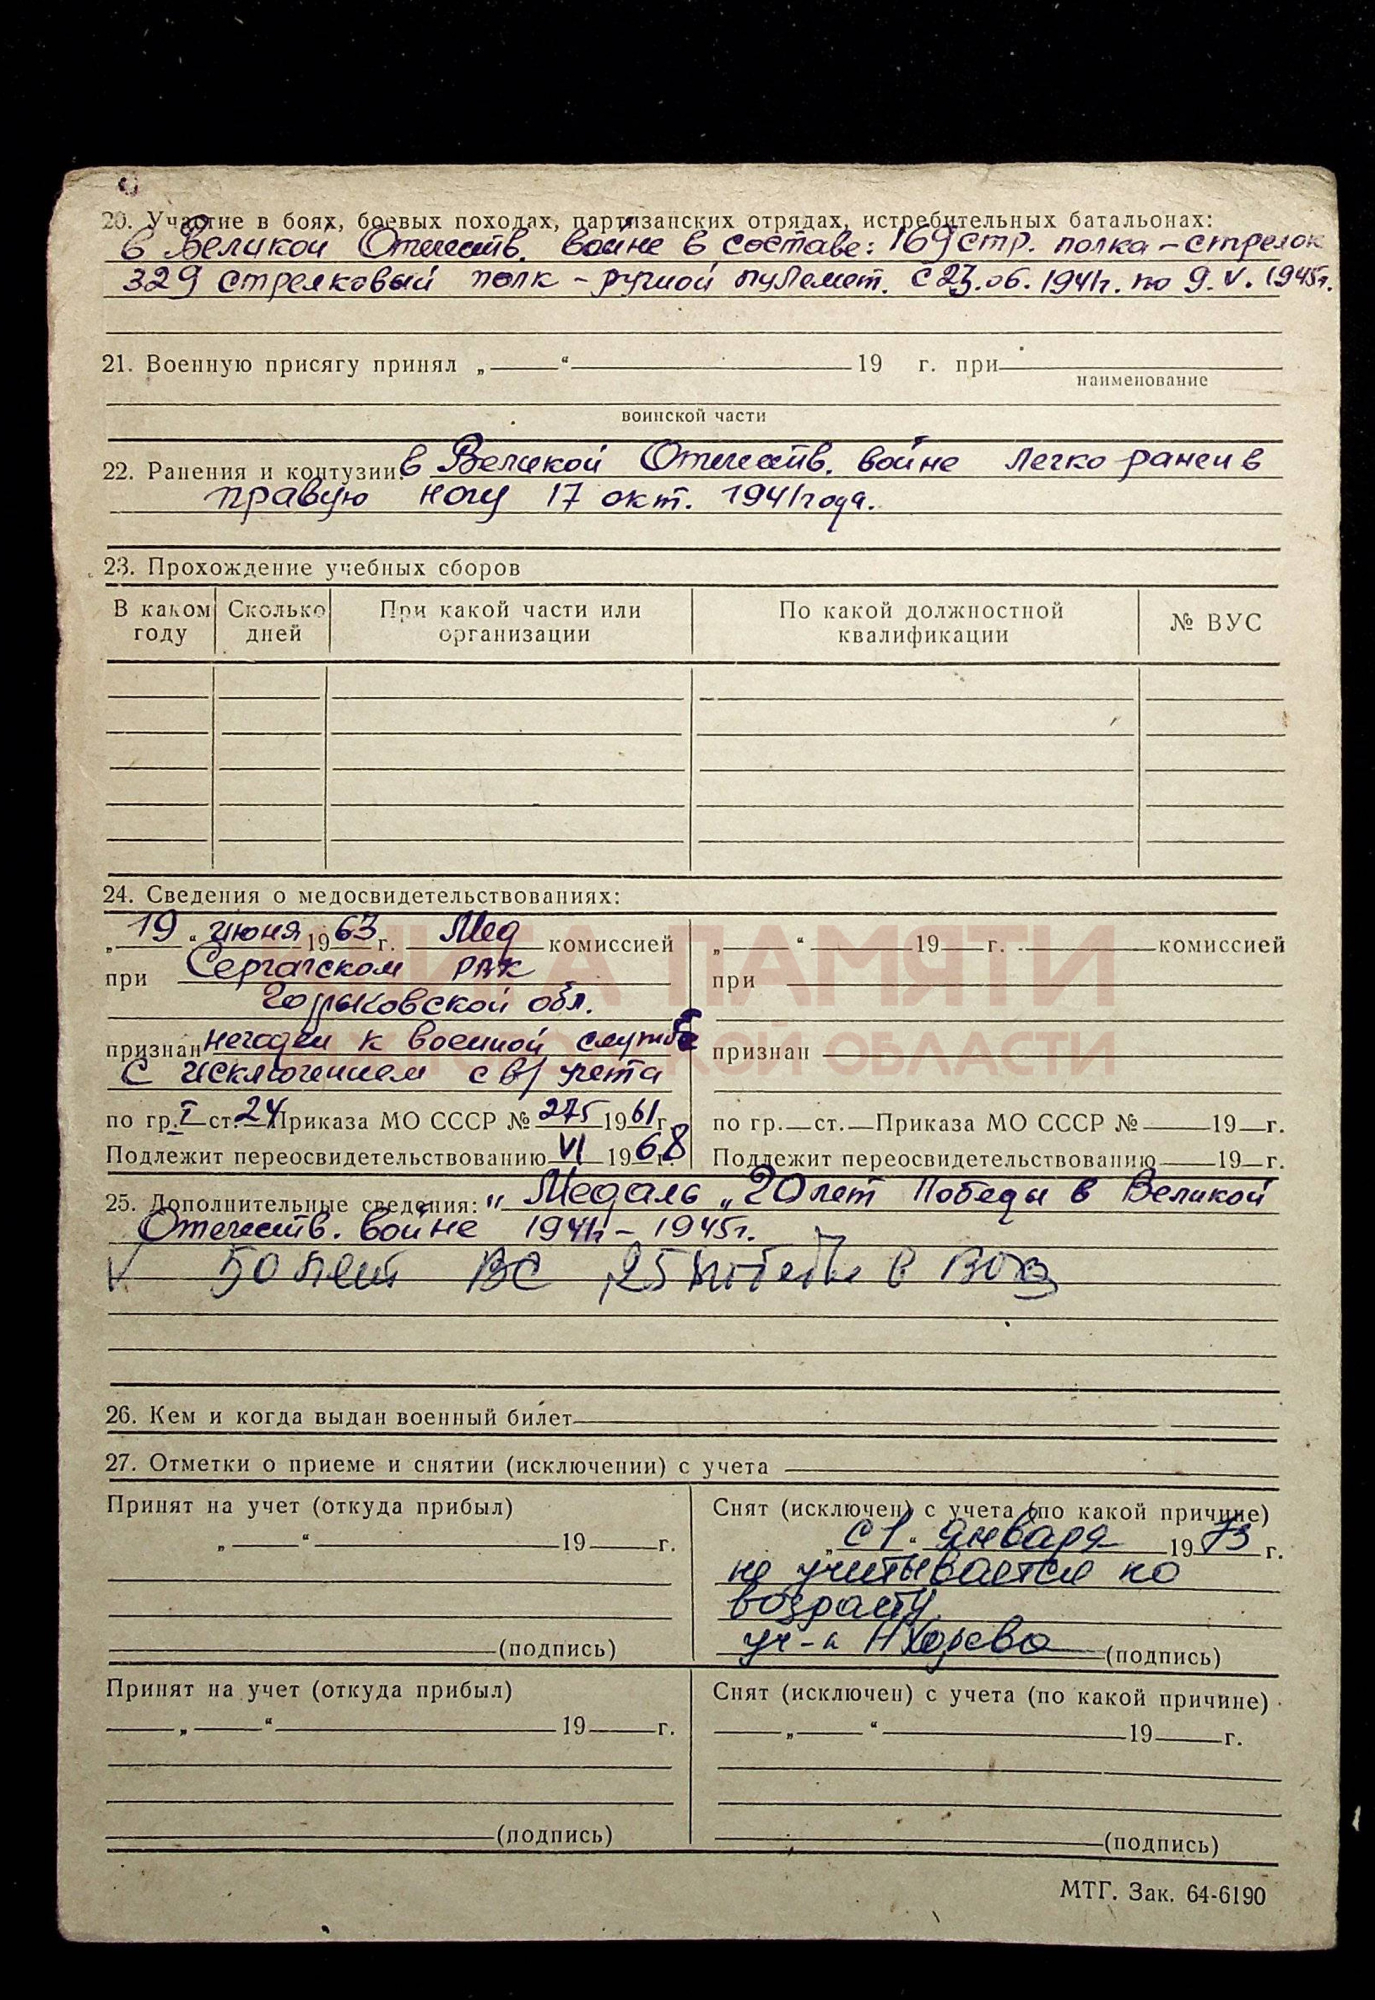 20. Участие в боях, боевых походах, партизанских отрядах, истребительных батальонах:
в Великой Отечеств. войне в составе: 169 стр. полка - стрелок
329 стрелковый полк - ручной пулемет. С 23.06.1941г. по 9.V.1945г.
21. Военную присягу принял „ “ 19 г. при
наименование
воинской части
22. Ранения и контузии: в Великой Отечеств. войне легко ранен в
правую ногу 17 окт. 1941 года.
23. Прохождение учебных сборов
В каком году Сколько дней При какой части или организации По какой должностной квалификации № ВУС
24. Сведения о медосвидетельствованиях:
„19“ июня 1963 г. Мед комиссией
при Сергачском РВК
Горьковской обл.
признан негоден к военной службе
с исключением с в/учета
по гр. I ст. 24 Приказа МО СССР № 275 1961 г.
Подлежит переосвидетельствованию VI 1968 г.
„ “ 19 г. комиссией
при
признан
по гр. ст. Приказа МО СССР № 19 г.
Подлежит переосвидетельствованию 19 г.
КНИГА ПАМЯТИ
НИЖЕГОРОДСКОЙ ОБЛАСТИ
25. Дополнительные сведения: „ Медаль „20 лет Победы в Великой
Отечеств. войне 1941г - 1945г.
V 50 лет ВС, 25 победы в ВОВ
26. Кем и когда выдан военный билет
27. Отметки о приеме и снятии (исключении) с учета
Принят на учет (откуда прибыл)
„ “ 19 г.
(подпись)
Снят (исключен) с учета (по какой причине)
„с 1“ января 1973 г.
не учитывается по
возрасту
(подпись)
Принят на учет (откуда прибыл)
„ “ 19 г.
(подпись)
Снят (исключен) с учета (по какой причине)
„ “ 19 г.
(подпись)
МТГ. Зак. 64-6190